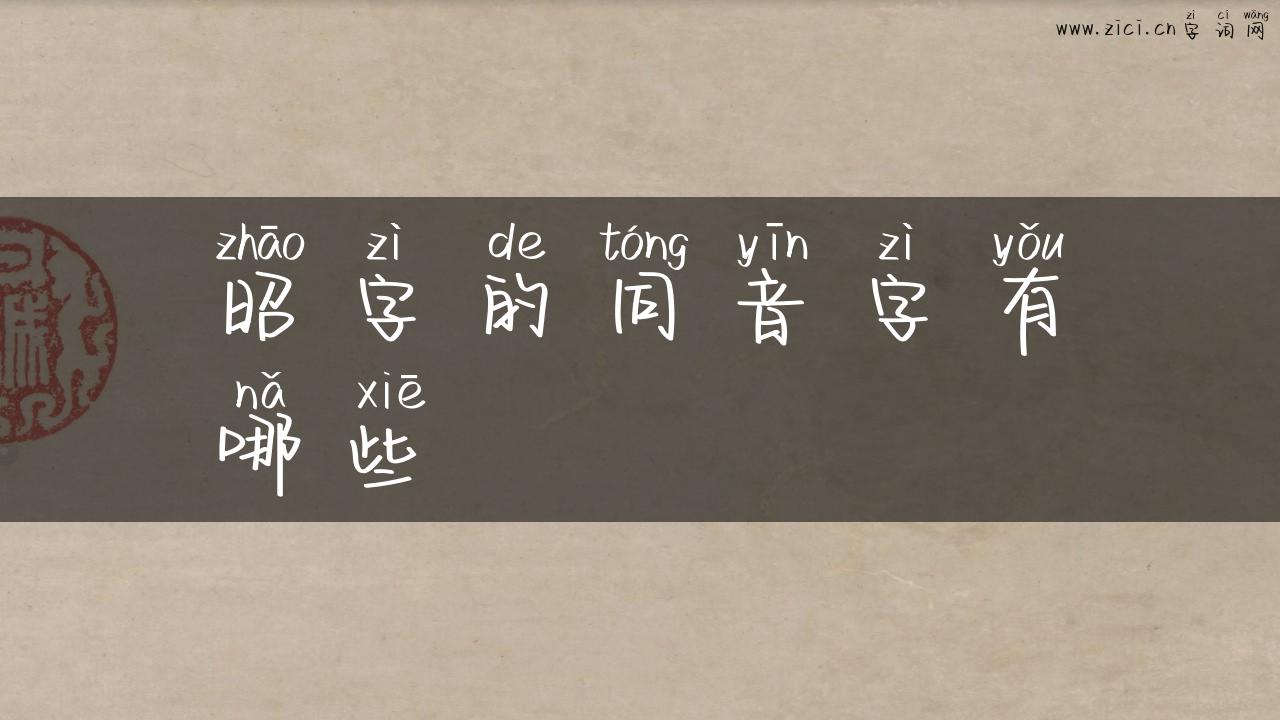 zì cí wǎng
www.zici.cn字词网
zhāo zì de tóng yīn zì yǒu
昭字的同音字有
nǎ xiē
哪些